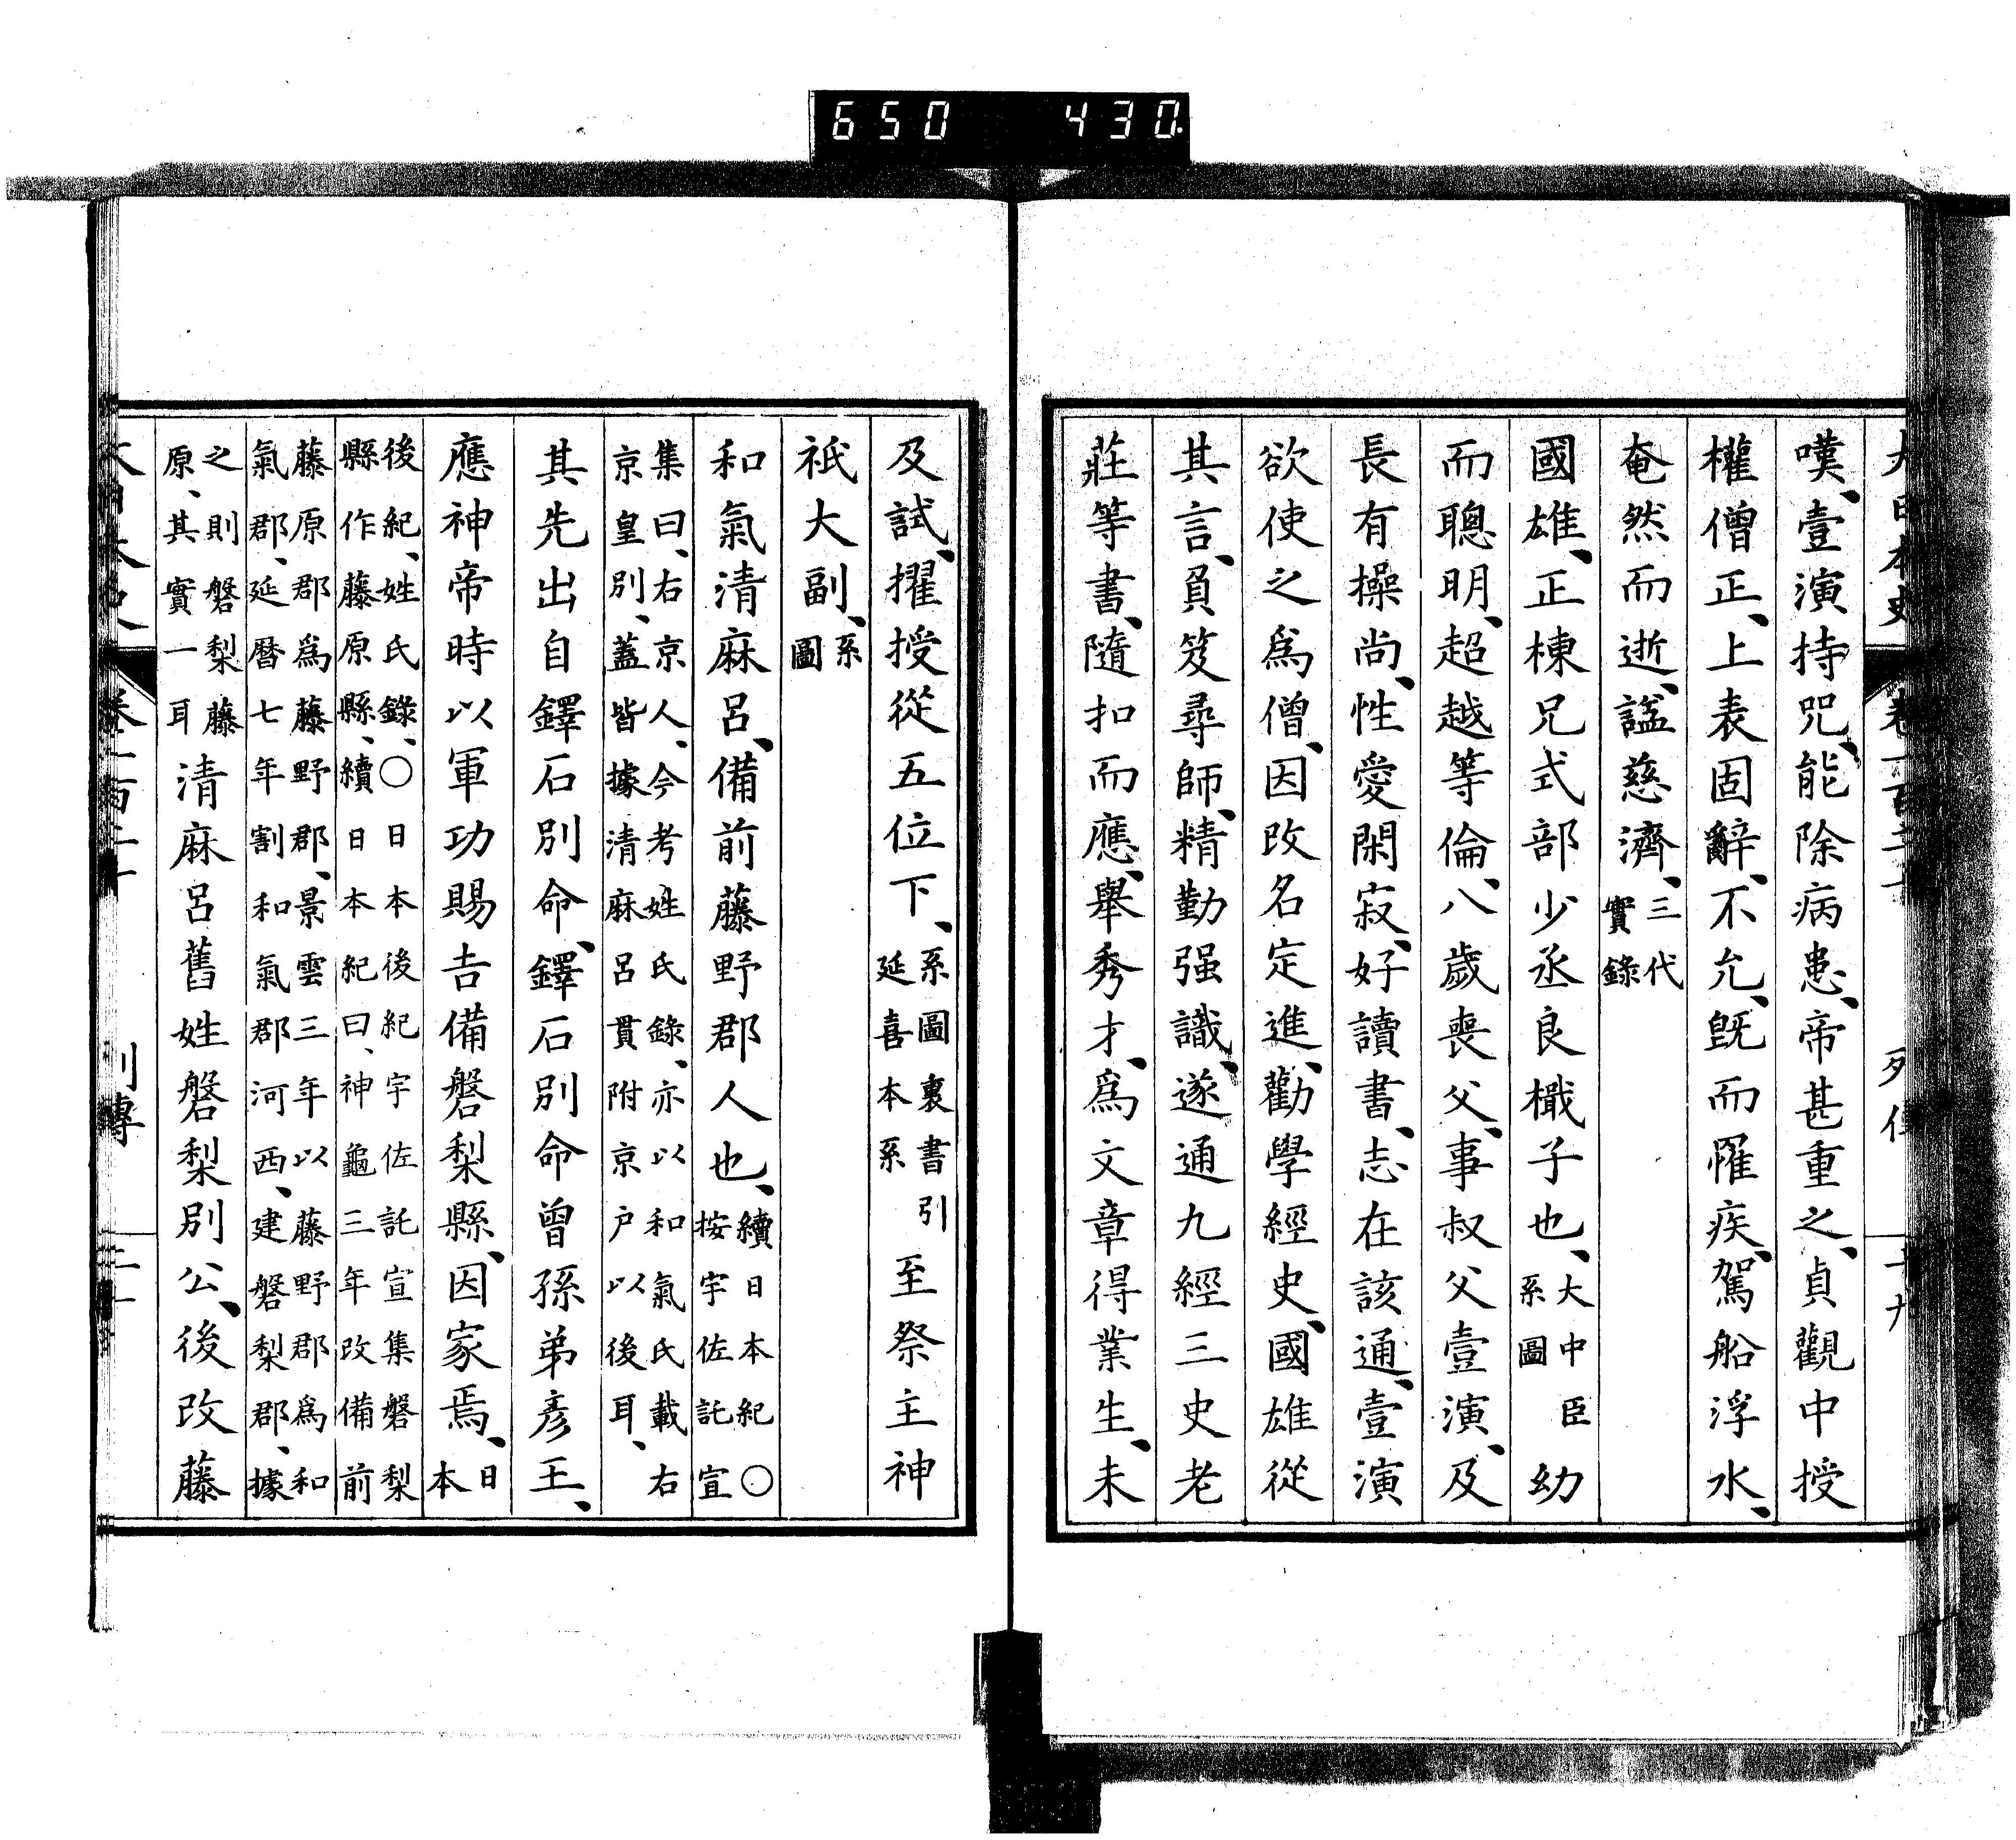 650 430.
大日本史
嘆、壹演持咒、能除病患、帝甚重之、貞觀中授
權僧正、上表固辭、不允、旣而罹疾、駕船浮水、
奄然而逝、諡慈濟、三代實錄
國雄、正棟兄式部少丞良檝子也、大中臣系圖幼
而聰明、超越等倫、八歲喪父、事叔父壹演、及
長有操尚、性愛閑寂、好讀書、志在該通、壹演
欲使之爲僧、因改名定進、勸學經史、國雄從
其言、負笈尋師、精勤强識、遂通九經三史老
莊等書、隨扣而應、舉秀才、爲文章得業生、未
及試、擢授從五位下、系圖裏書引延喜本系至祭主神
祇大副、系圖
和氣清麻呂、備前藤野郡人也、續日本紀○按宇佐託宣
集曰、右京人、今考姓氏錄、亦以和氣氏載右京皇別、蓋皆據清麻呂貫附京户以後耳、
其先出自鐸石別命、鐸石別命曾孫弟彥王、
應神帝時以軍功賜吉備磐梨縣、因家焉、日本
後紀、姓氏錄、○日本後紀宇佐託宣集磐梨縣作藤原縣、續日本紀曰、神龜三年改備前
藤原郡爲藤野郡、景雲三年以藤野郡爲和氣郡、延曆七年割和氣郡河西、建磐梨郡、據
之則磐梨藤原、其實一耳清麻呂舊姓磐梨別公、後改藤